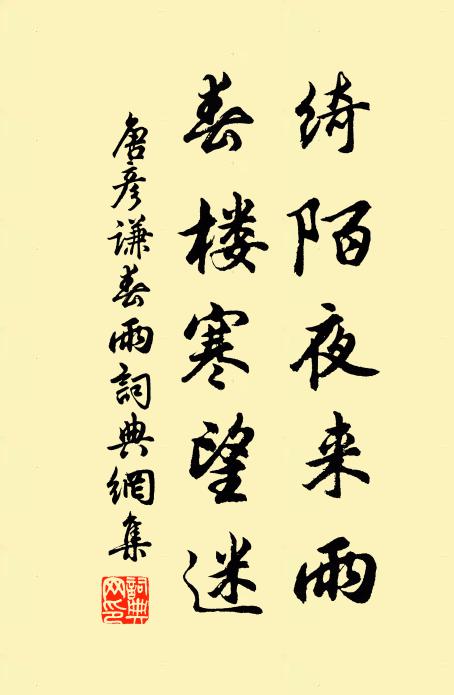 绮陌夜来雨
春楼寒望迷
唐彦谦春雨詞典網集
詞典网印